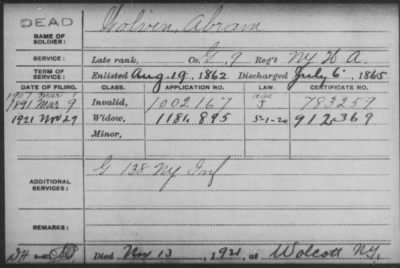 DEAD
NAME OF SOLDIER: Golven, Abram
SERVICE: Late rank, Co. G, 9 Reg't NY H A.
TERM OF SERVICE: Enlisted Aug. 19, 1862 Discharged July 6, 1865
DATE OF FILING. CLASS. APPLICATION NO. LAW. CERTIFICATE NO.
1891 Mar 9 Invalid, 1002167 783259
1921 Nov 29 Widow, 1181895 5-1-20 912369
Minor,
ADDITIONAL SERVICES: G 138 NY Inf
REMARKS:
Died Nov 13, 1921, at Wolcott NY.